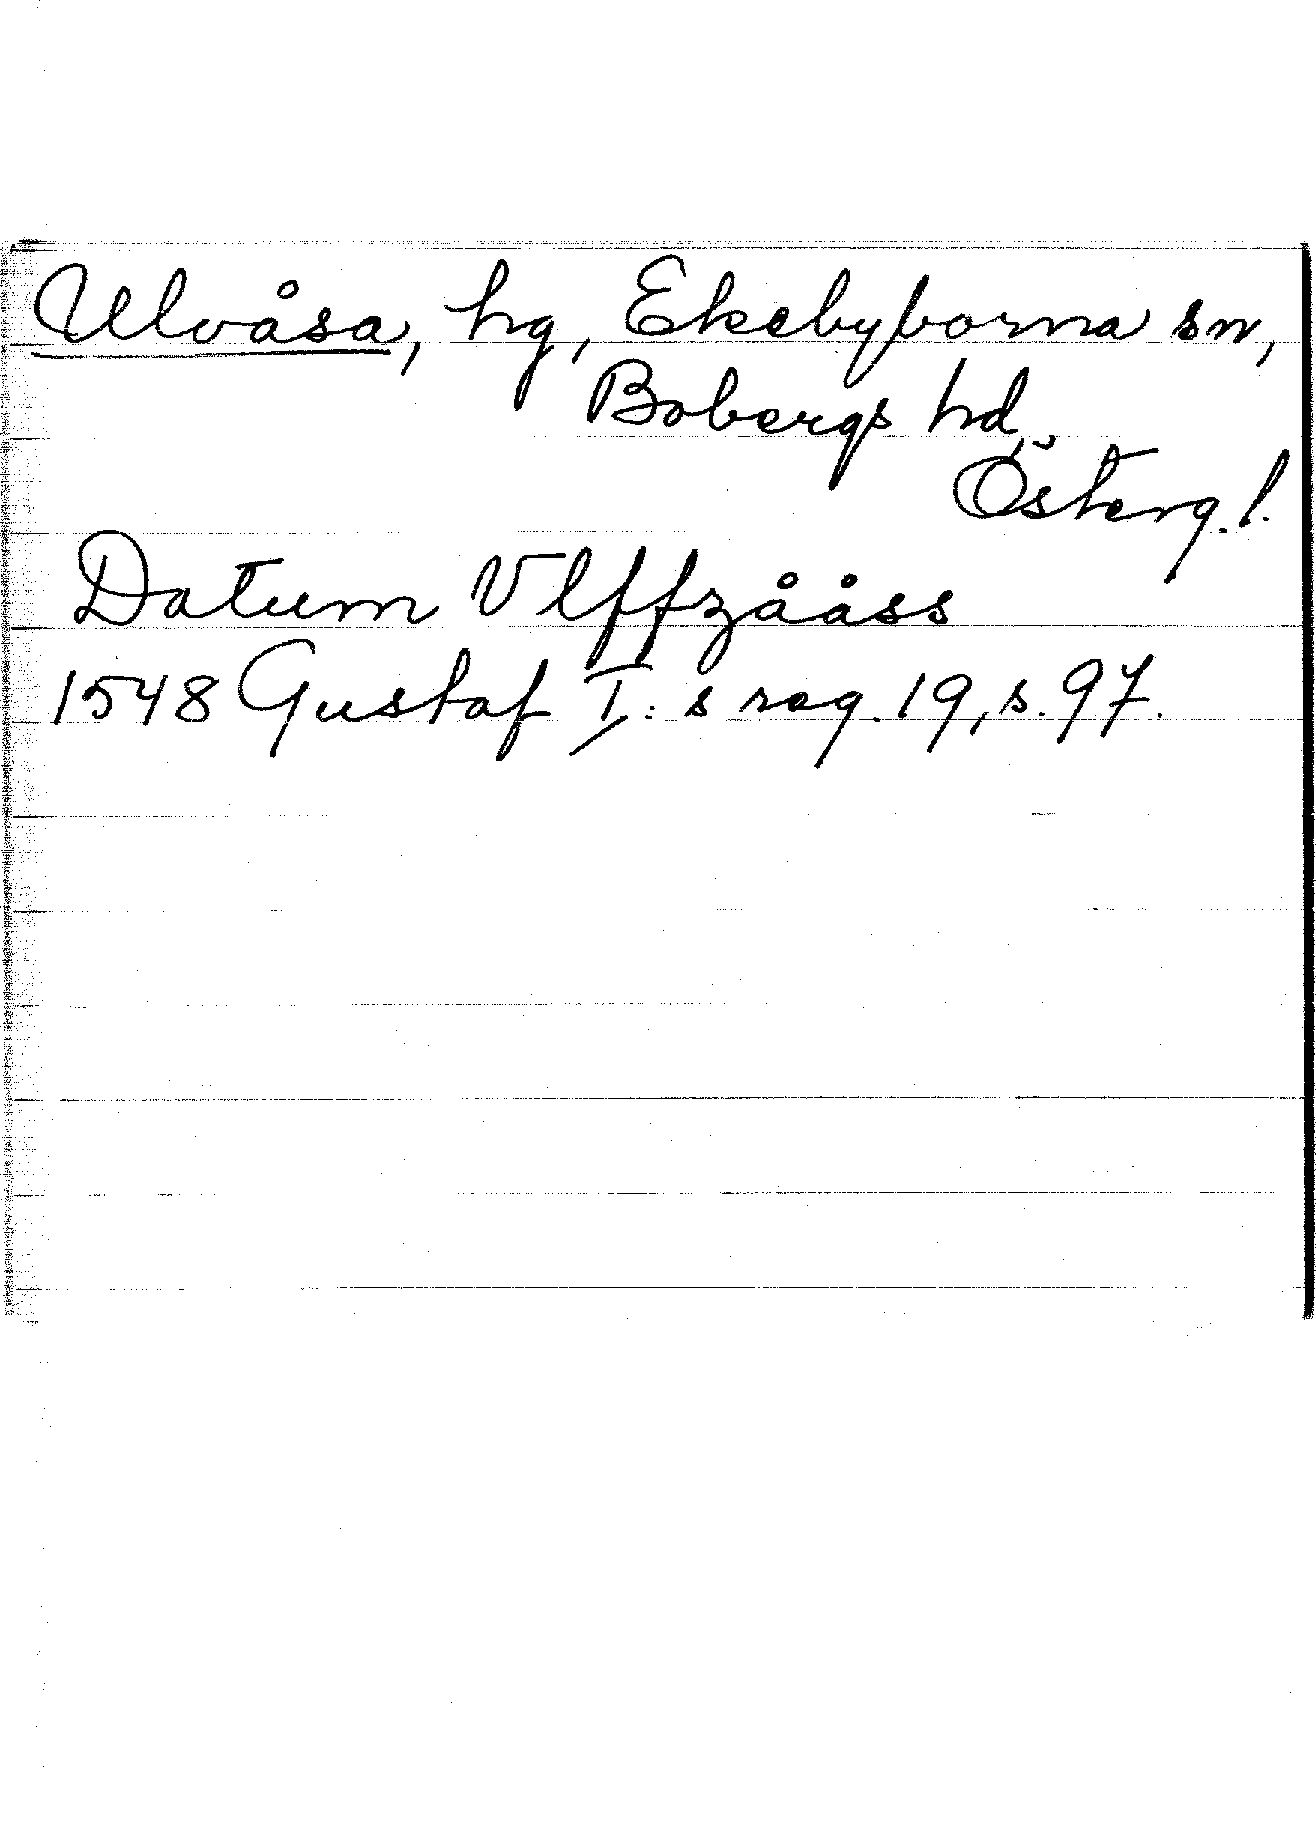 Ulvåsa, hg, Ekebyborna sn,
Bobergs hd,
Österg.l.
Datum Vlffzååss
1548 Gustaf I:s reg. 19, s. 97.